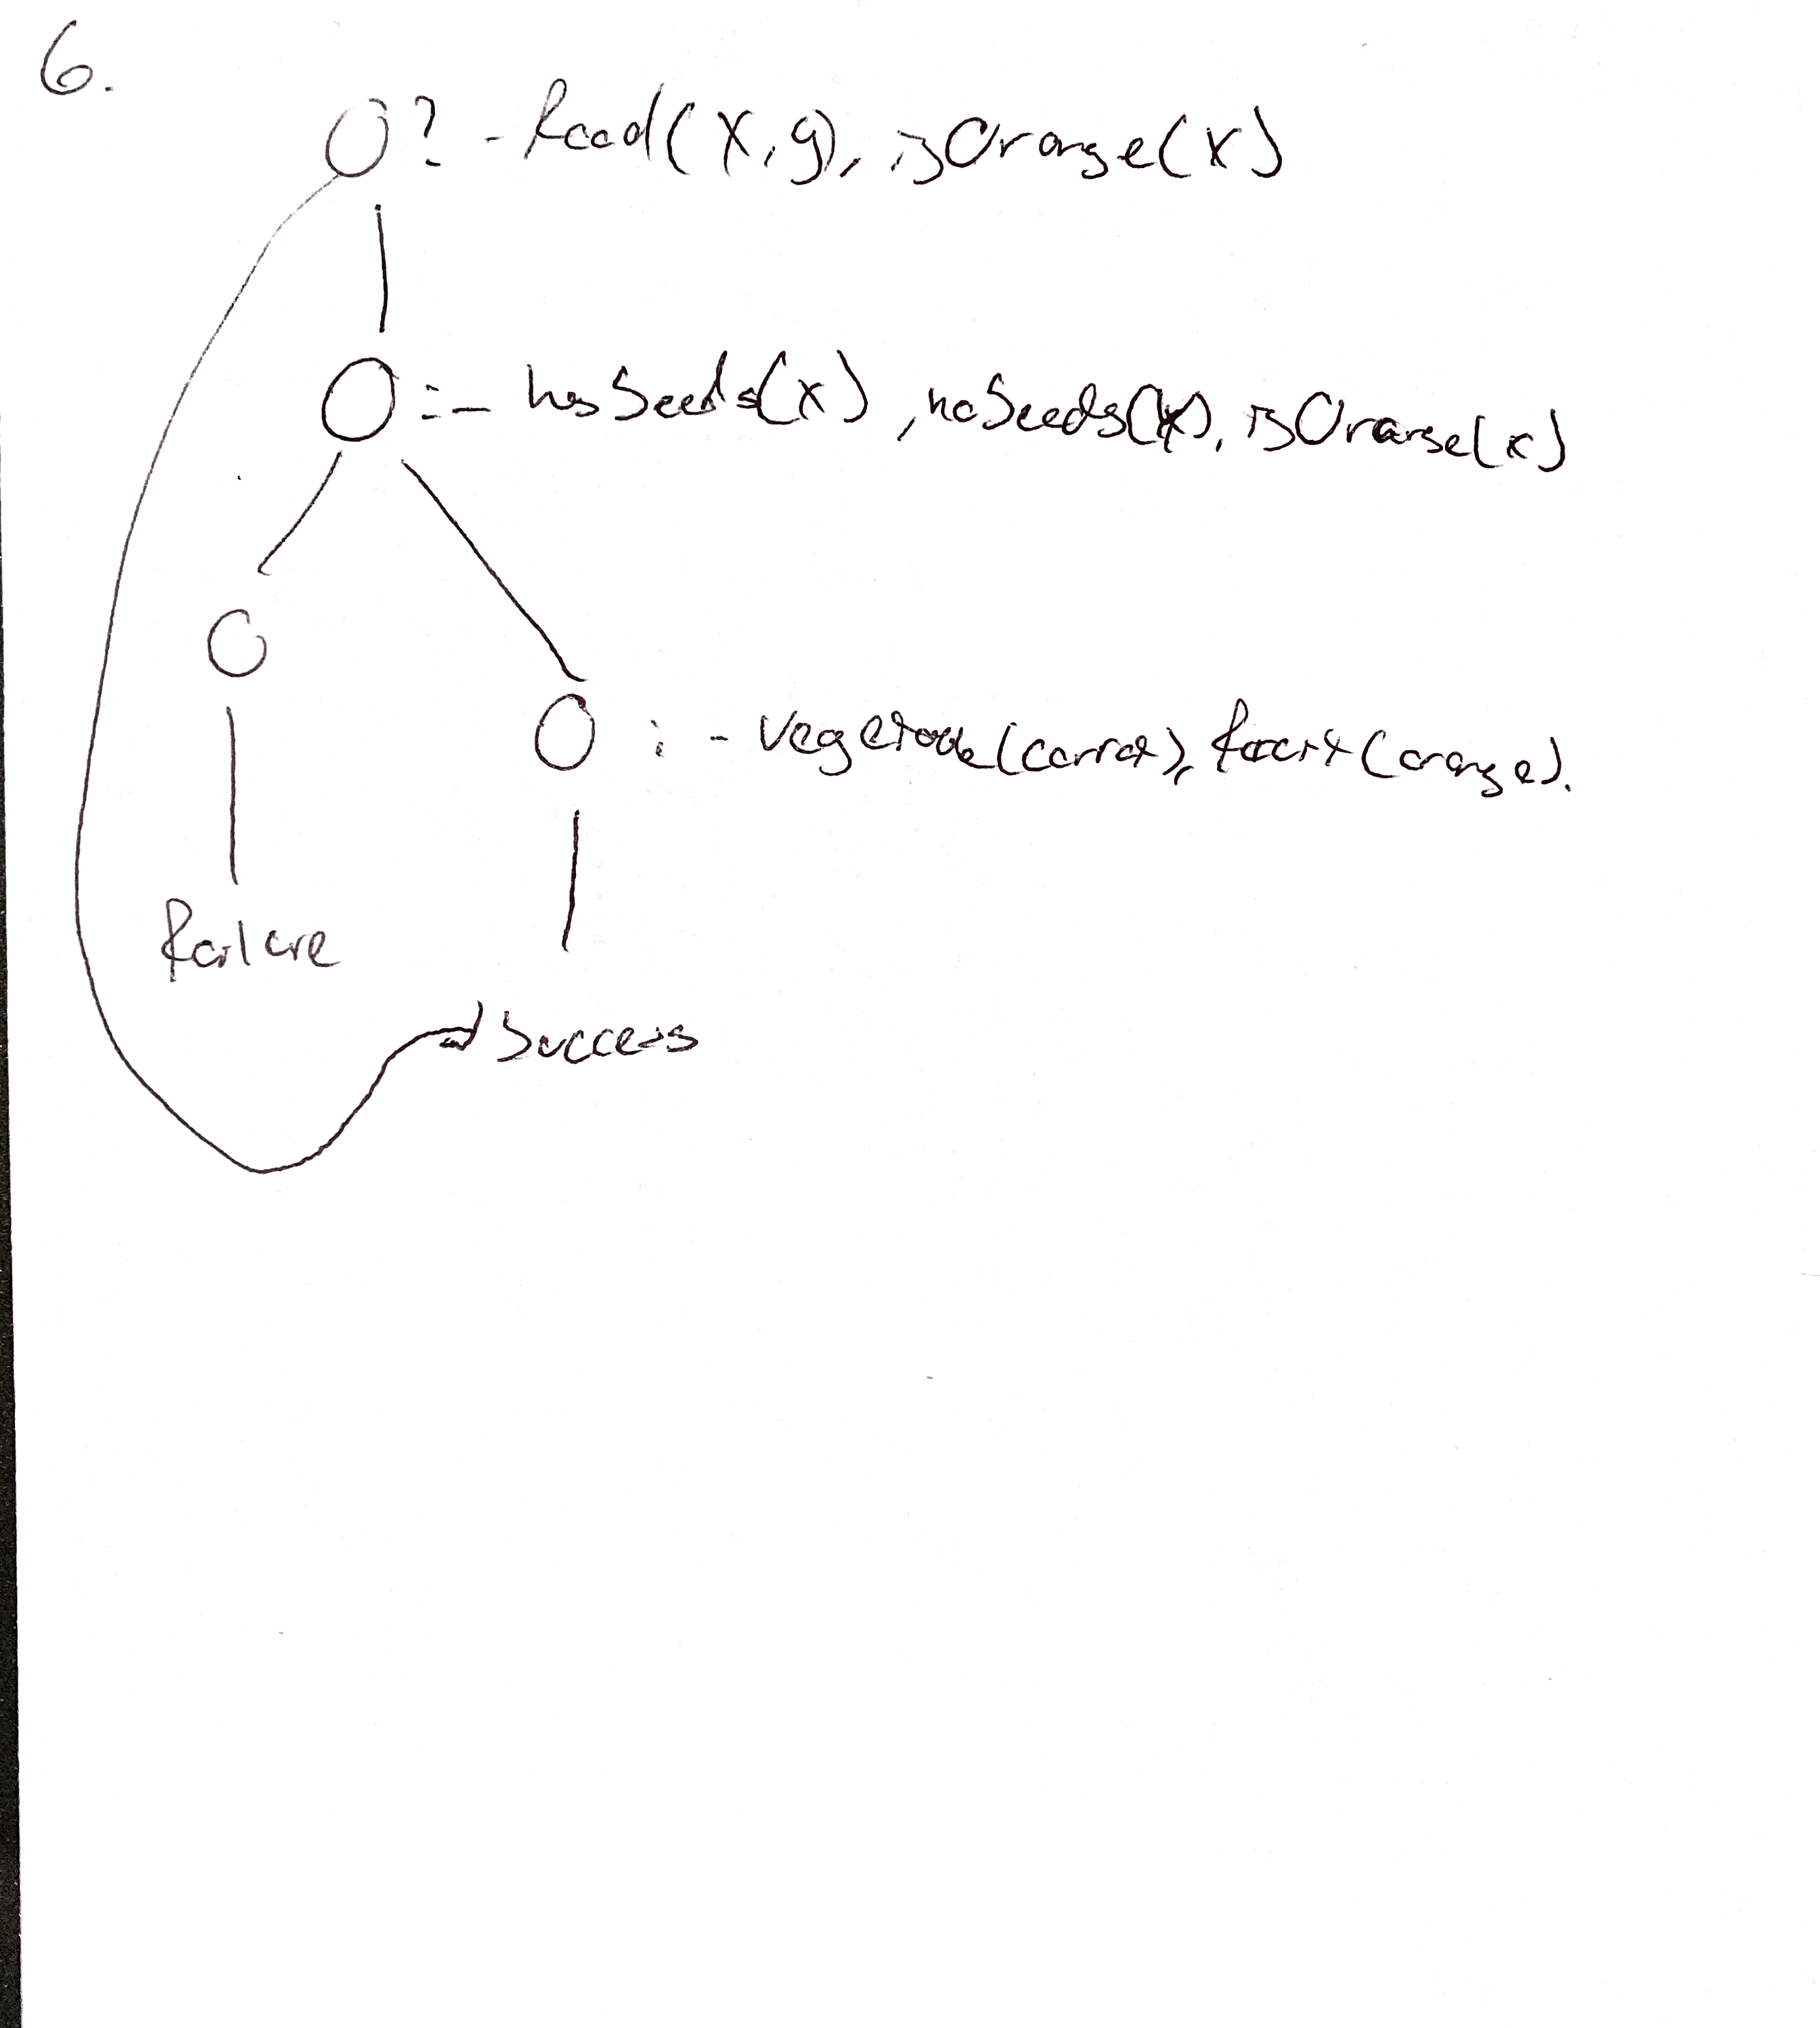 6.
? - food(X,y), isOrange(x)
:- hasSeeds(x), noSeeds(x), isOrange(x)
:- vegetable(carrot), fruit(orange).
failure
success